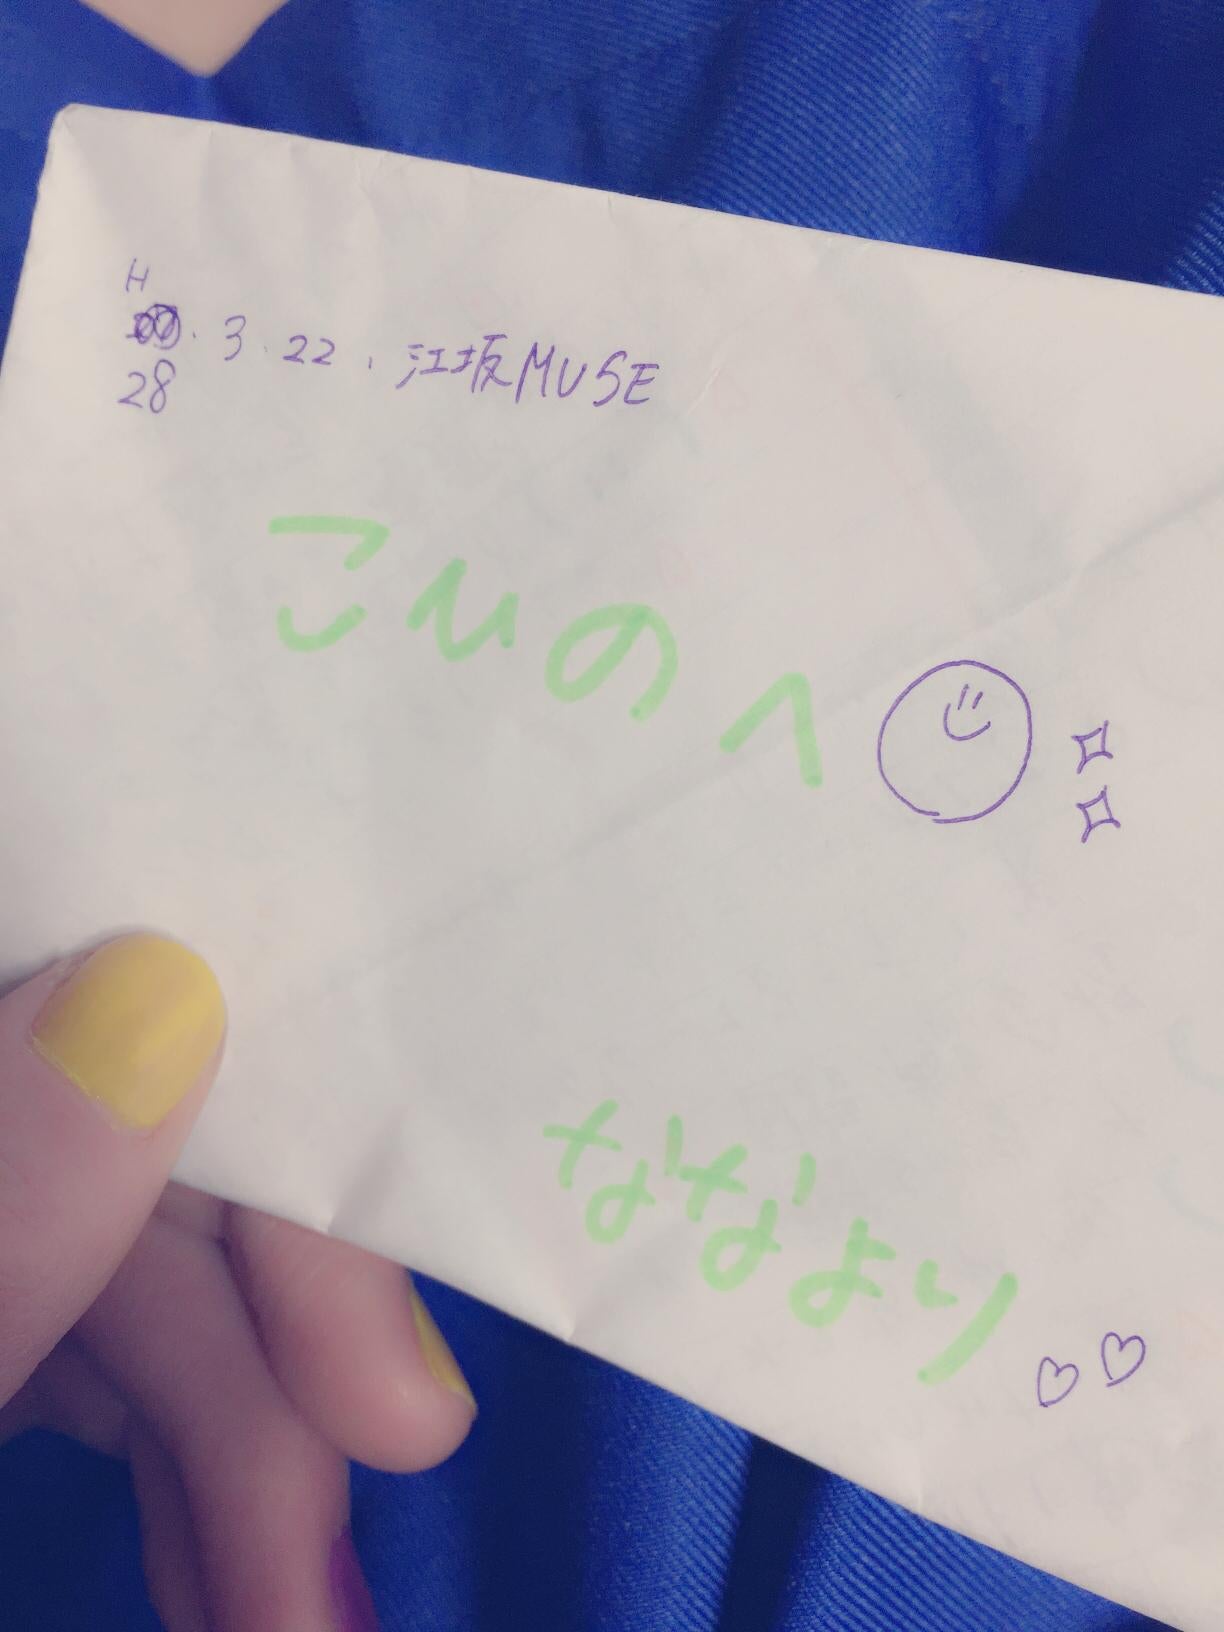 H
28.3.22.江坂MUSE
こひのへ
ななより